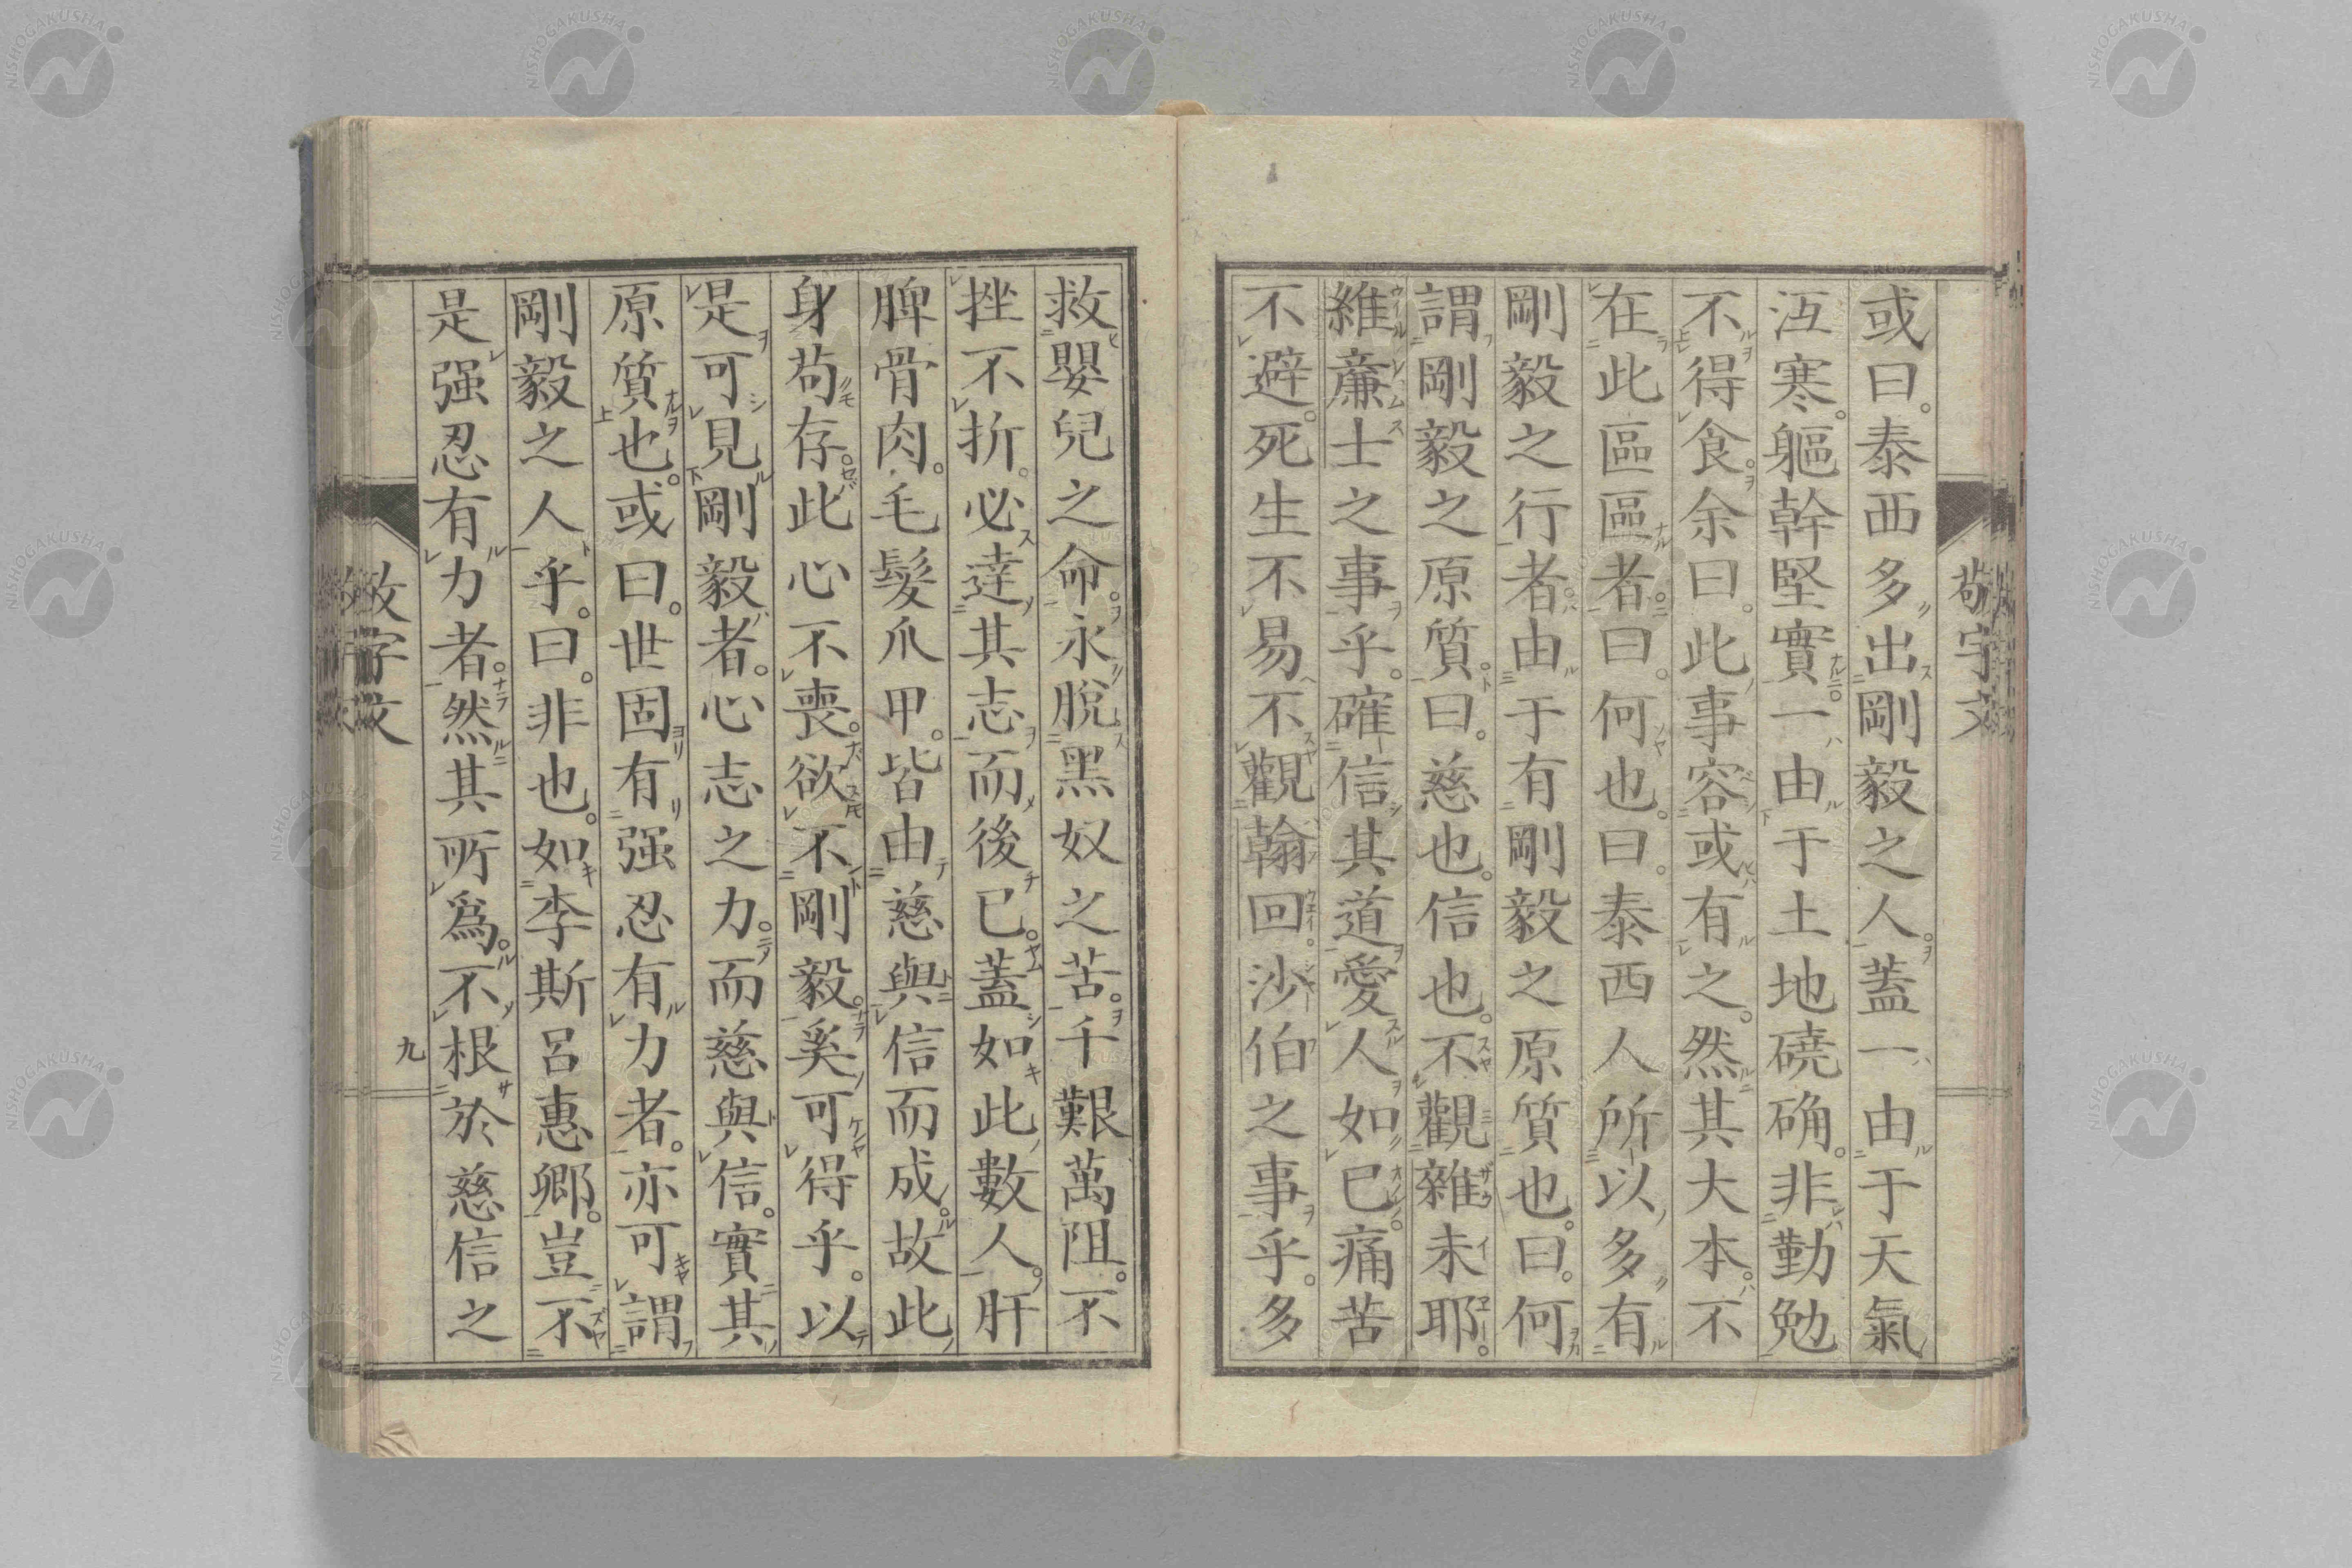 或曰。泰西多出剛毅之人。蓋一由于天氣
沍寒。軀幹堅實。一由于土地磽确。非勤勉
不得食。余曰。此事容或有之。然其大本。不
在此區區者。曰。何也。曰。泰西人所以多有
剛毅之行者。由于有剛毅之原質也。曰。何
謂剛毅之原質。曰。慈也。信也。不觀雜未耶。
維廉士之事乎。確信其道愛人如已。痛苦
不避。死生不易。不觀翰回。沙伯之事乎。多
救嬰兒之命。永脫黑奴之苦。千艱萬阻。不
挫不折。必達其志而後已。蓋如此數人。肝
脾骨肉。毛髮爪甲。皆由慈與信而成。故此
身苟存。此心不喪。欲不剛毅。奚可得乎。以
是可見剛毅者。心志之力。而慈與信。實其
原質也。或曰。世固有强忍有力者。亦可謂
剛毅之人乎。曰。非也。如李斯呂惠卿。豈不
是强忍有力者。然其所爲。不根於慈信之
敬宇文
九